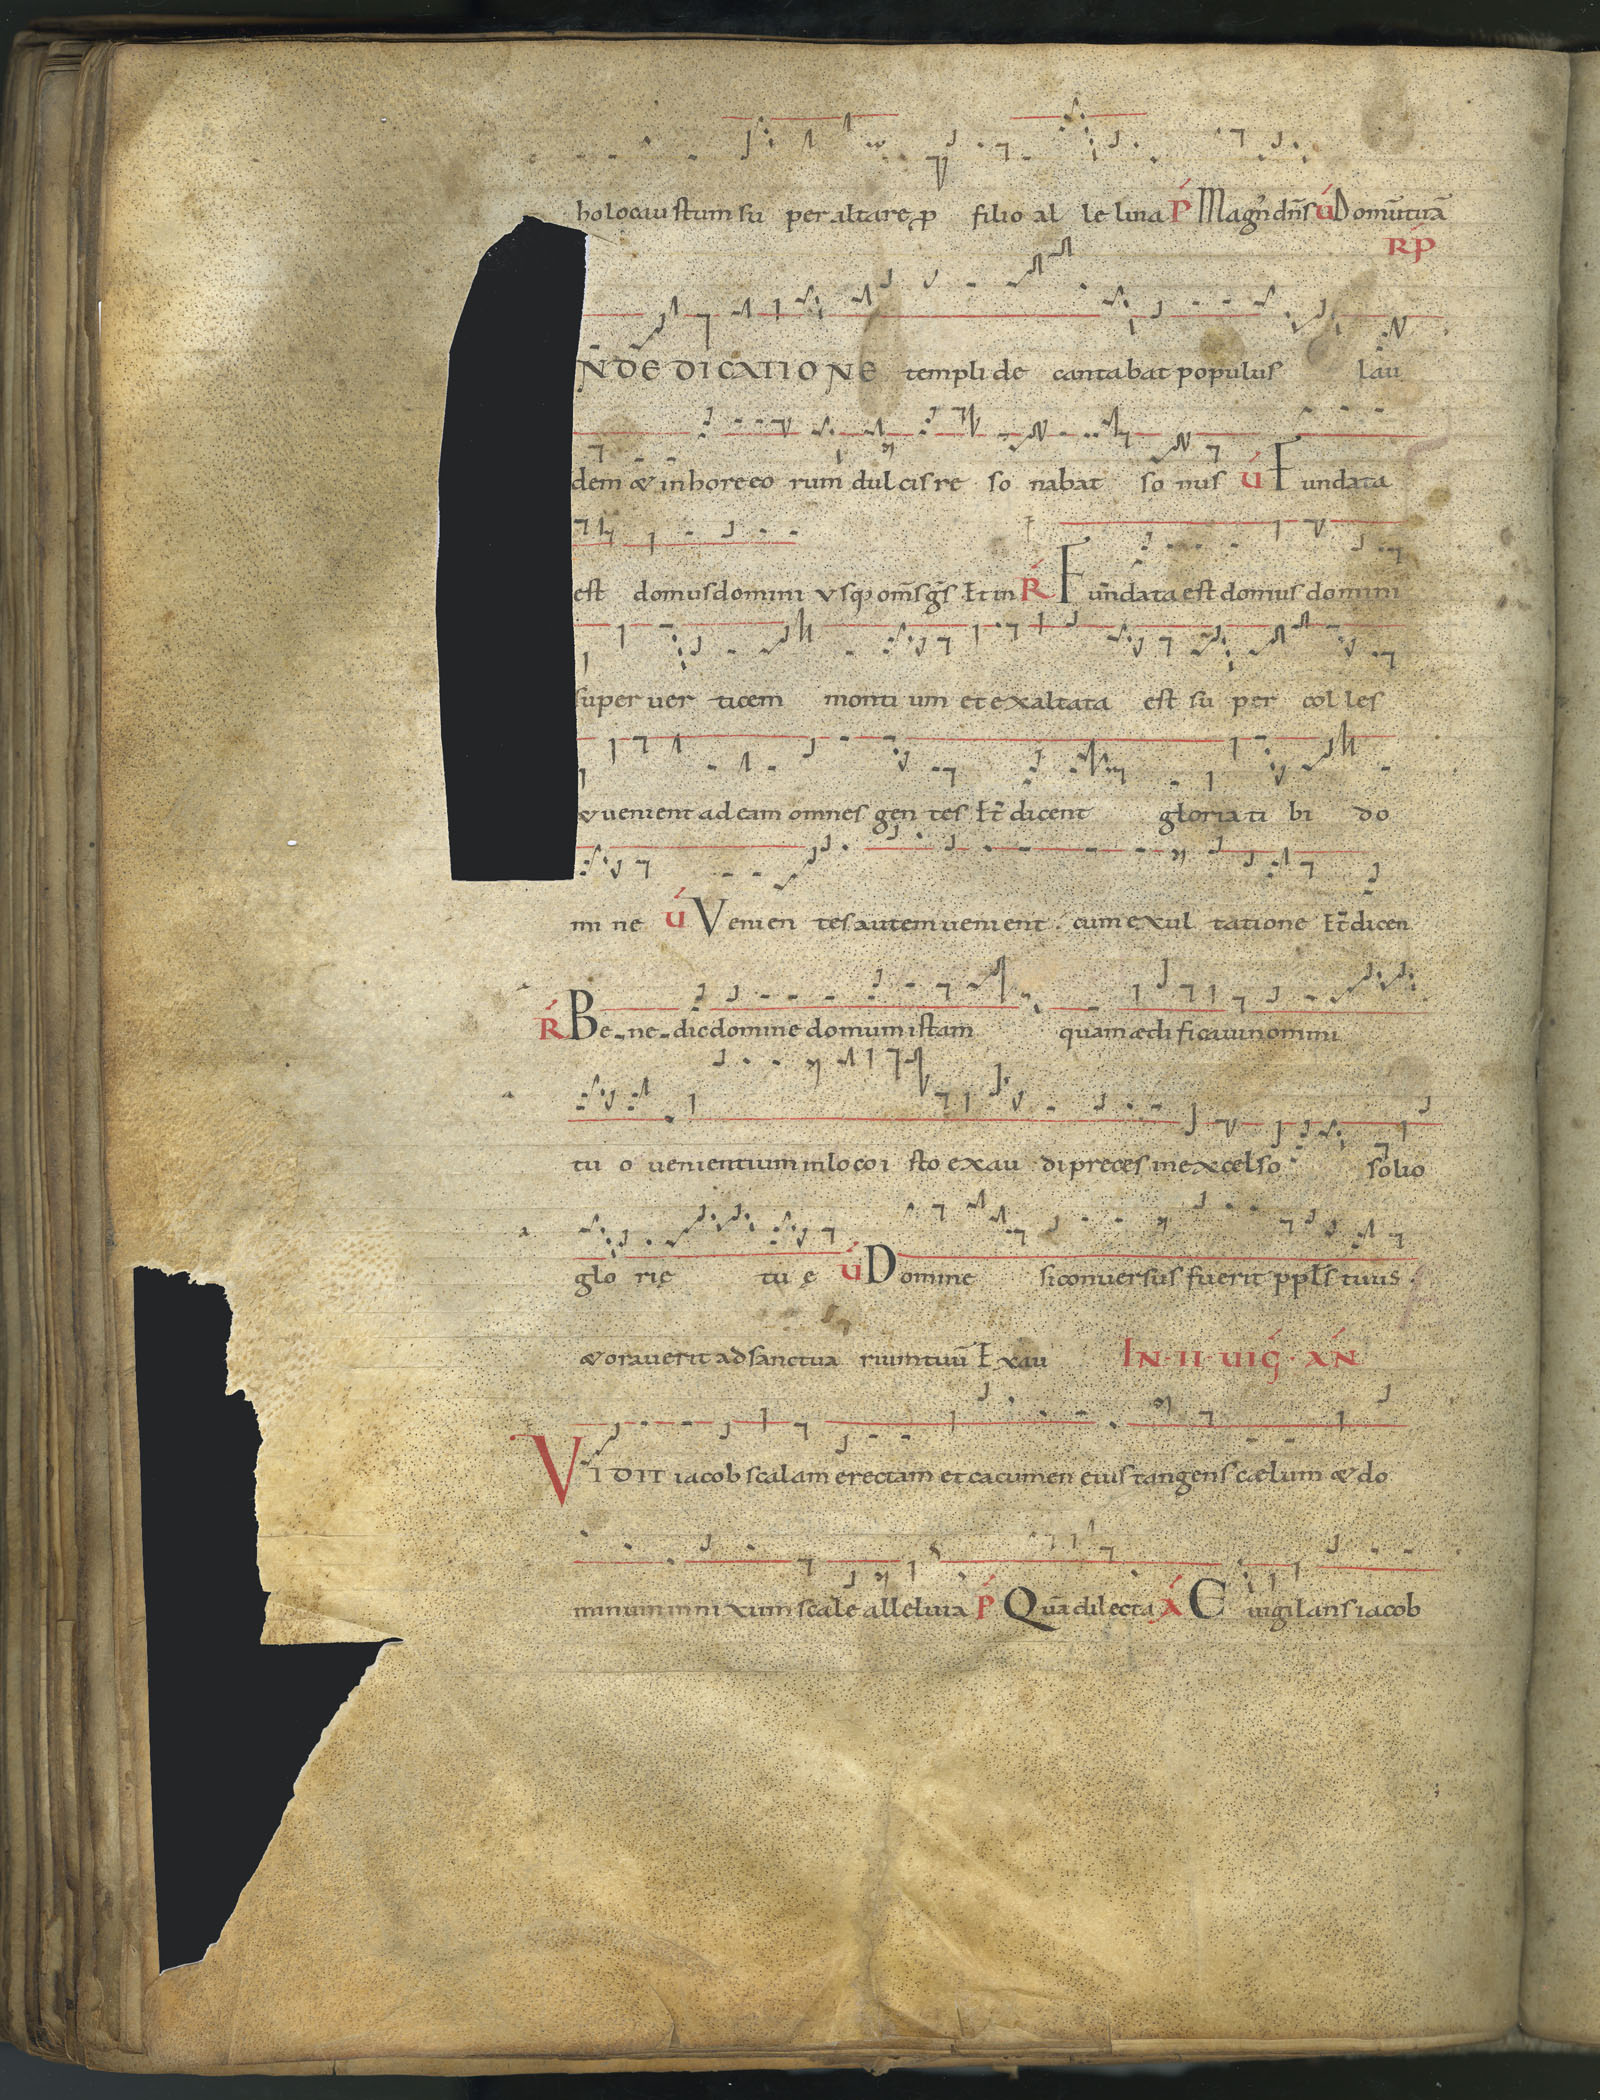 holocau stum su per altare p filio al le luia P Magn dns V Domu tua
RP
N DE DICATIONE templi de cantabat populus lau
dem & in hore eo rum dul cis re so nabat so nus V Fundata
est domus domini vsq oms gs Et in R Fundata est domus domini
super uer ticem monti um et exaltata est su per col les
& uenient ad eam omnes gen tes Et dicent gloria ti bi do
mi ne V Venien tes autem uenient cum exul tatione Et dicen
R Be-ne-dic domine domum istam quam ædi ficaui nomini
tu o uenientium in loco i sto exau di preces in excelso solio
glo rię tu ę V Domine si conuersus fuerit ppls tuus
& orauerit ad sanctua rium tuu Exau IN II UIG AN
VIDIT iacob scalam erectam et cacumen eius tangens cælum & do
minum inni xum scale alleluia P Qua dilecta A E uigilans iacob